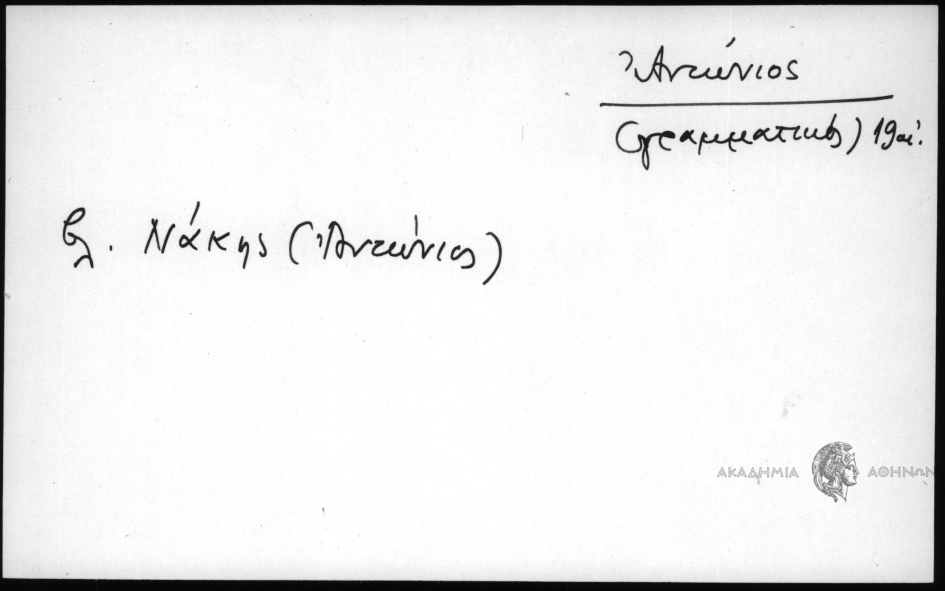 Ἀντώνιος
(γραμματικός) 19 αἰ.
βλ. Νάκης (Ἀντώνιος)
ΑΚΑΔΗΜΙΑ ΑΘΗΝΩΝ